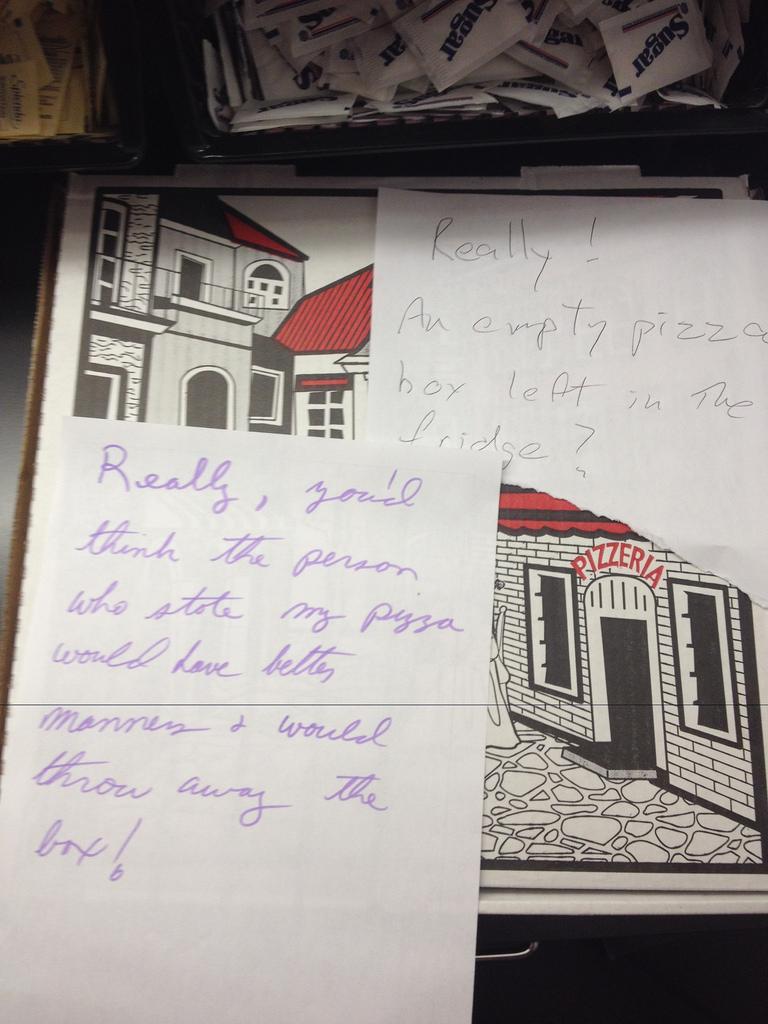 Sugar
Sugar
Sugar
Splenda
Really!
An empty pizza
box left in the
fridge?
PIZZERIA
Really, you'd
think the person
who stole my pizza
would have better
manners & would
throw away the
box!